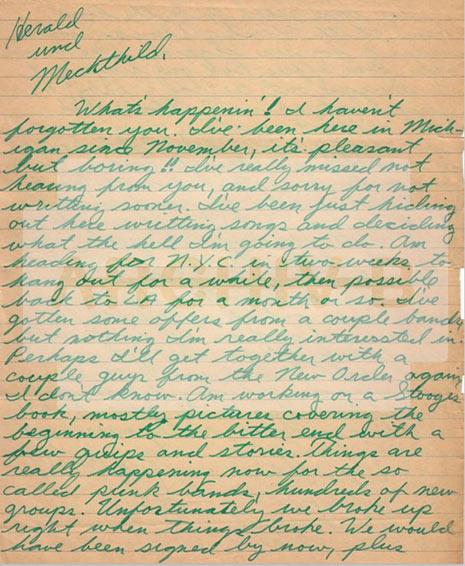 Herald
und
Mechthild,
What's happenin'! I haven't
forgotten you. I've been here in Mich-
igan since November, it's pleasant
but boring!! I've really missed not
hearing from you, and sorry for not
writting sooner. I've been just hiding
out here writting songs and deciding
what the hell I'm going to do. Am
heading for N.Y.C. in two weeks to
hang out for a while, then possible
back to LA for a month or so. I've
gotten some offers from a couple bands
but nothing I'm really interessted in.
Perhaps I'd get together with a
couple guys from the New Order again
I don't know. Am working on a Stooges
book, mostly pictures covering the
beginning to the bitter end with a
few quips and stories. Things are
really happening now for the so
called punk bands, hundreds of new
groups. Unfortunately we broke up
right when things broke. We would
have been signed by now, plus